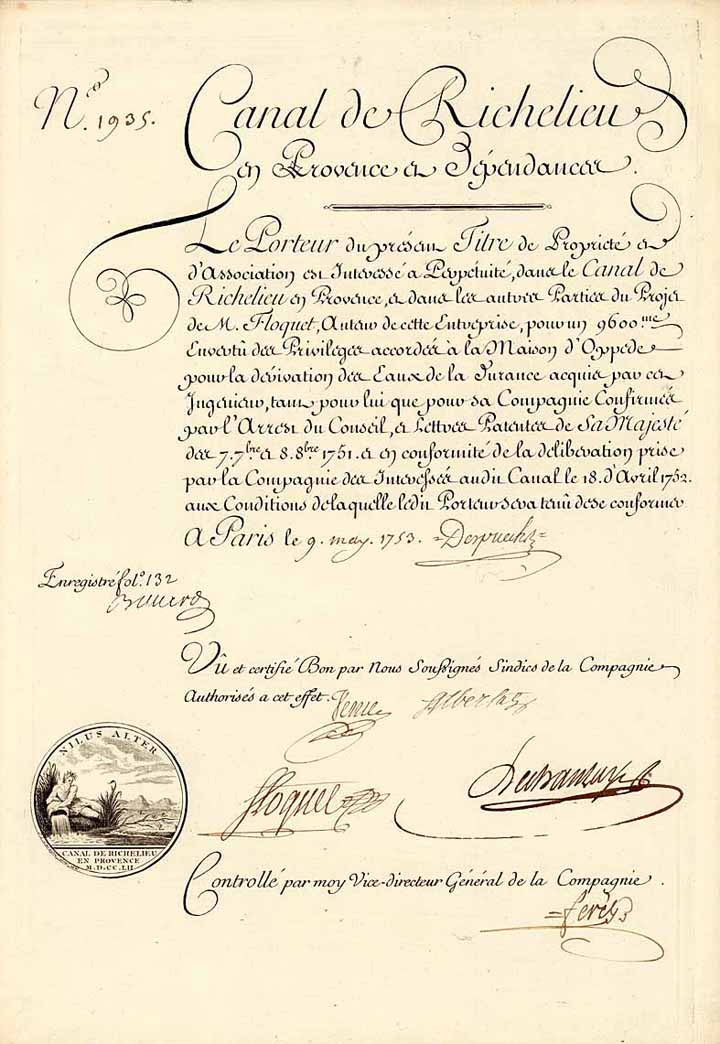 N.º 1935.
Canal de Richelieu
en Provence et Dépendances.
Le Porteur du présent Titre de Propriété et
d'Association est Interessé a Perpétuité, dans le Canal de
Richelieu en Provence, et dans les autres Parties du Projet
de M. Floquet, Auteur de cette Entreprise, pour un 9600.me
Envertû des Privileges accordés à la Maison d'Oppede
pour la dérivation des Eaux de la Durance acquis par cet
Ingénieur, tant pour lui que pour sa Compagnie Confirmés
par l'Arrest du Conseil, et Lettres Patentes de Sa Majesté
des 7. 7.bre et 8. 8.bre 1751. et en conformité de la déliberation prise
par la Compagnie des Interessés audit Canal le 18. d'Avril 1752.
aux Conditions de laquelle ledit Porteur sera tenû de se conformer
A Paris le 9. may. 1753. =Derpuech=
Enregistré fol.º 132
Vû et certifié Bon par Nous Soussignés Sindics de la Compagnie
Authorisés a cet effet.
Albertas
Floquet
NILUS ALTER
CANAL DE RICHELIEU
EN PROVENCE
M.D.CC.LII
Controllé par moy Vice-directeur Général de la Compagnie.